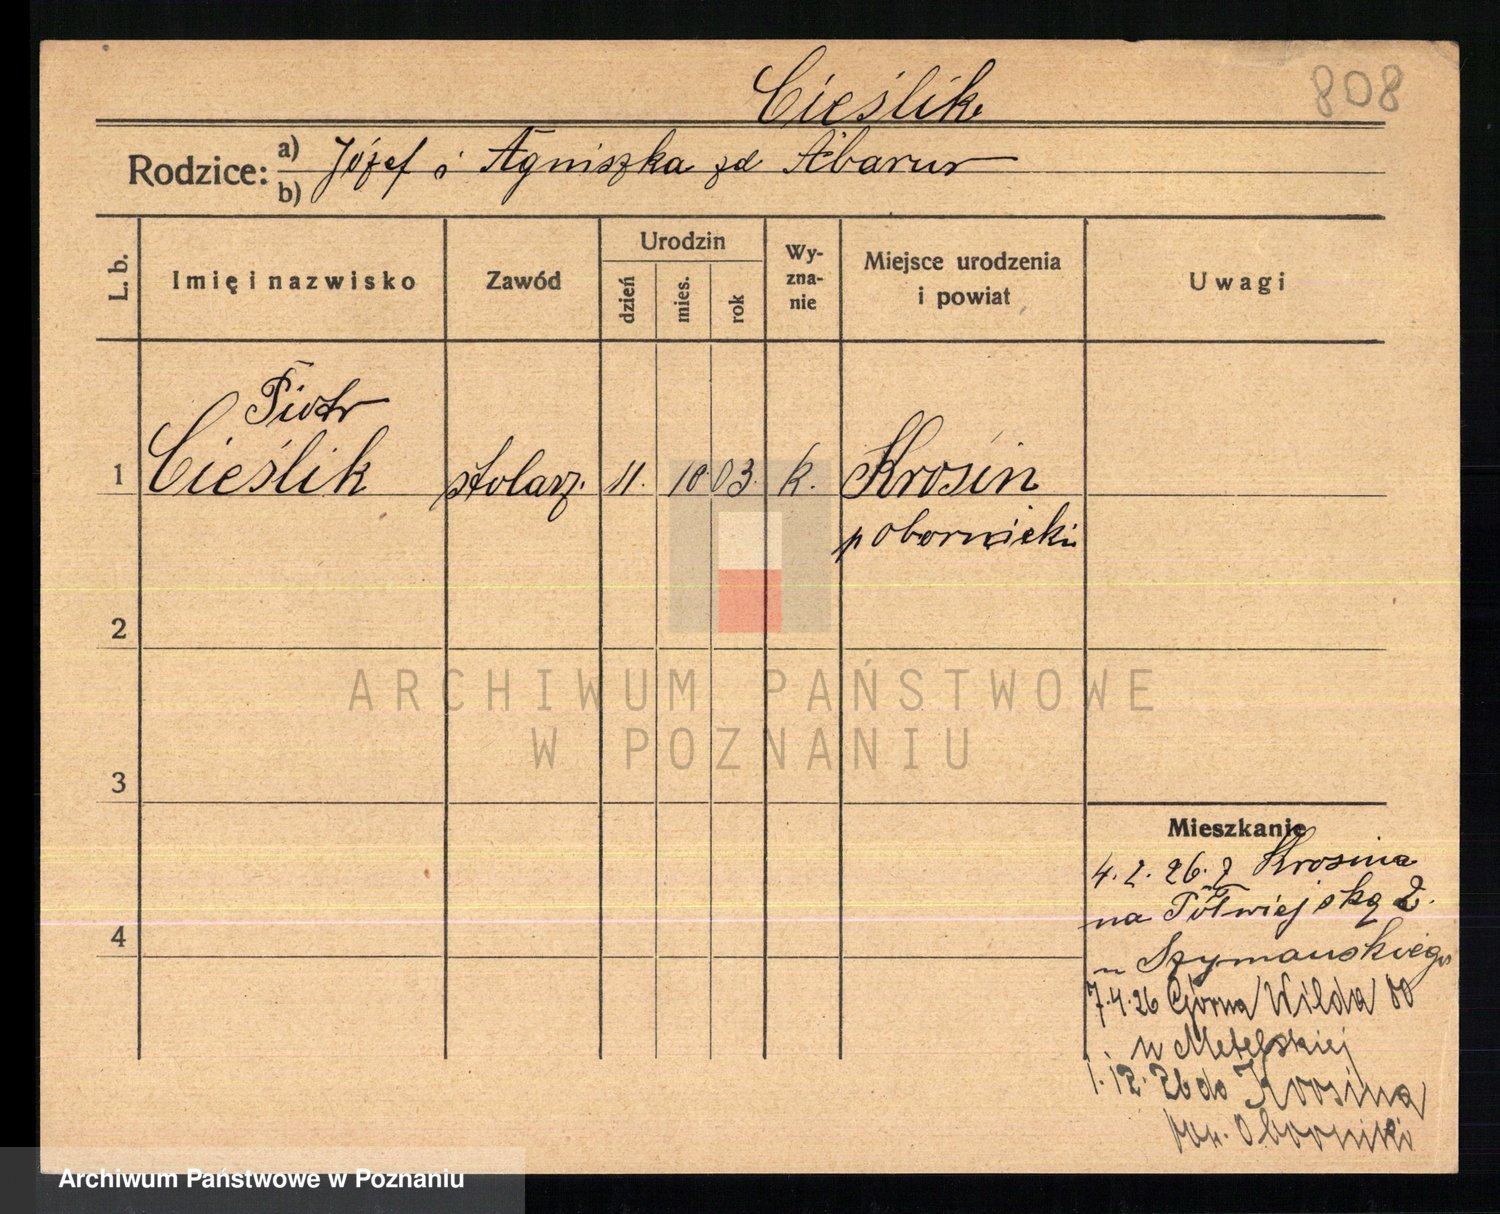 Cieślik
808
Rodzice: a) Józef i Agniszka zd
b)
L. b.
Imię i nazwisko
Zawód
Urodzin
dzień
mies.
rok
Wy-
zna-
nie
Miejsce urodzenia
i powiat
Uwagi
Piotr
1 Cieślik stolarz. 11. 10. 03. k. Krosin
p obornicki
2
ARCHIWUM PAŃSTWOWE
W POZNANIU
3
Mieszkanie
4. 2. 26. z Krosina
na Półwiejską 2.
4
u Szymańskiego
7.4.26 Górna Wilda 80
u Metelskiej
1. 12. 26 do Krosina
pow. Oborniki
Archiwum Państwowe w Poznaniu